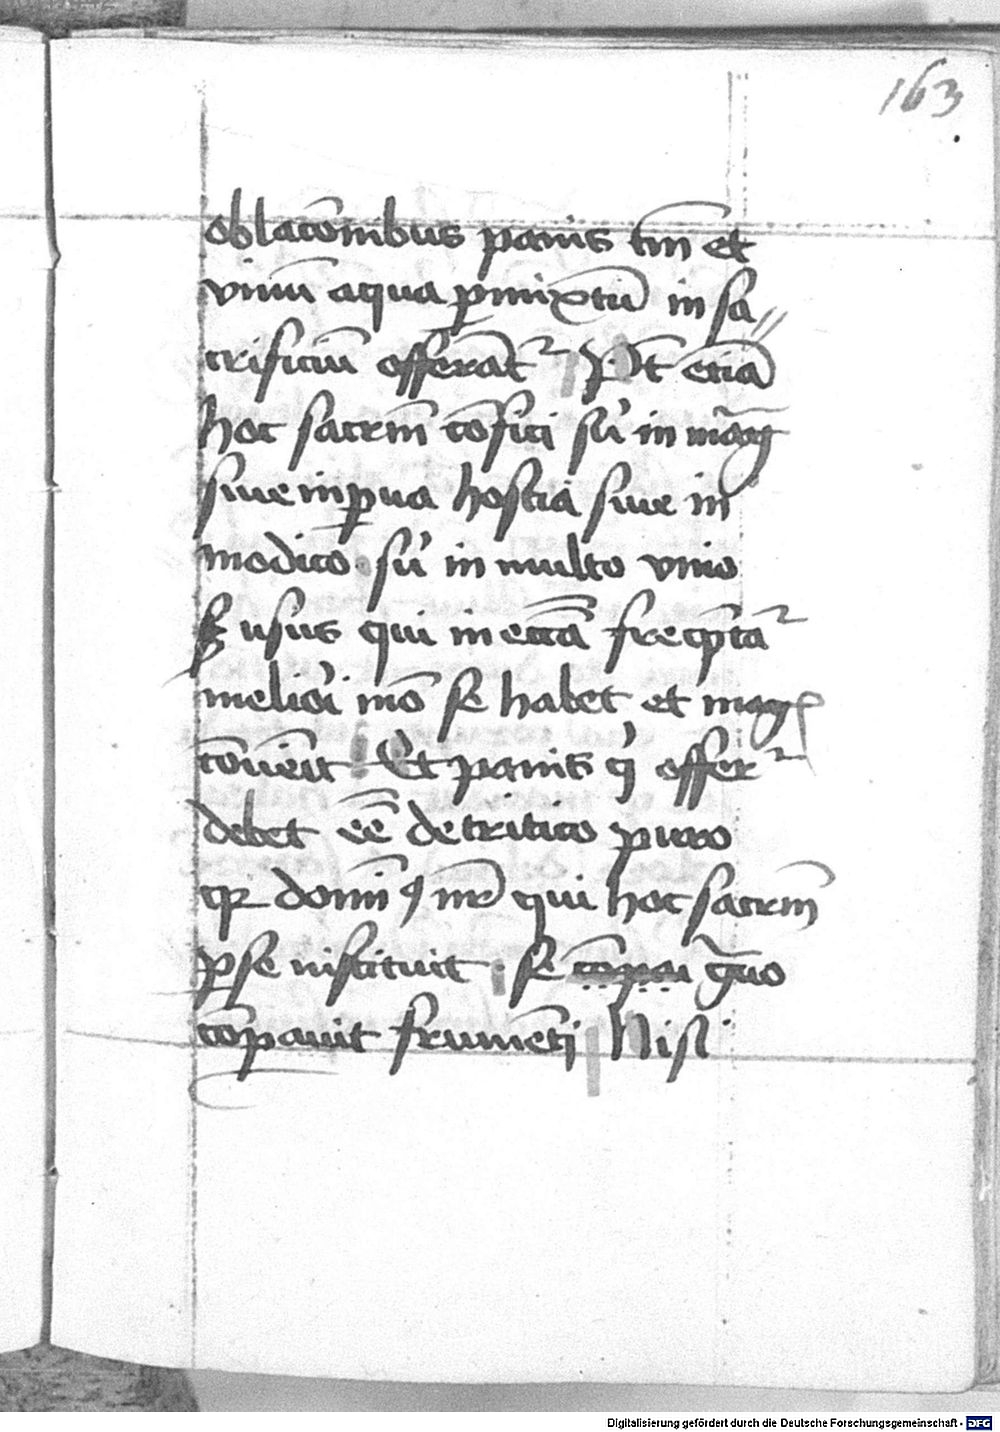 163
oblacōnibus panis tm̄ et
vinū aqua ꝑmixtū in sa⸗
crificiū offerāt᷑ Pōt etiā
hoc sacrm̄ cōfici siu̾ in mag̅
siue in ꝑua hostia siue in
modico siu̾ in multo vino
sꝫ usus qui in eccā freqn̄ta᷑
meliori mō se habet et mag̅
cōuēit Et panis q̇ offer᷑
debet ēē de tritico puro
qꝛ domin̄ꝯ nr̄ qui hoc sacrm̄
ꝑ se instituit se grano
cōpauit frumēti Nisi
Digitalisierung gefördert durch die Deutsche Forschungsgemeinschaft - DFG